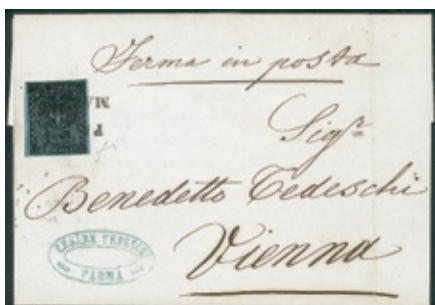 Ferma in posta
Sig.r
Benedetto Tedeschi
Vienna
PARMA